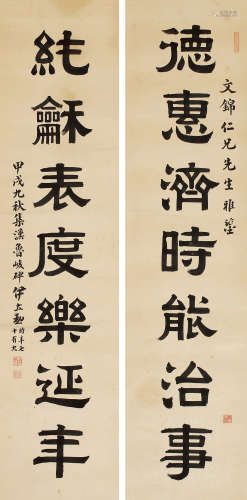 德惠濟時能治事
文錦仁兄先生雅鑒
純龢表度樂延年
甲戌九秋集漢魯峻碑伊立勳時年七十有九